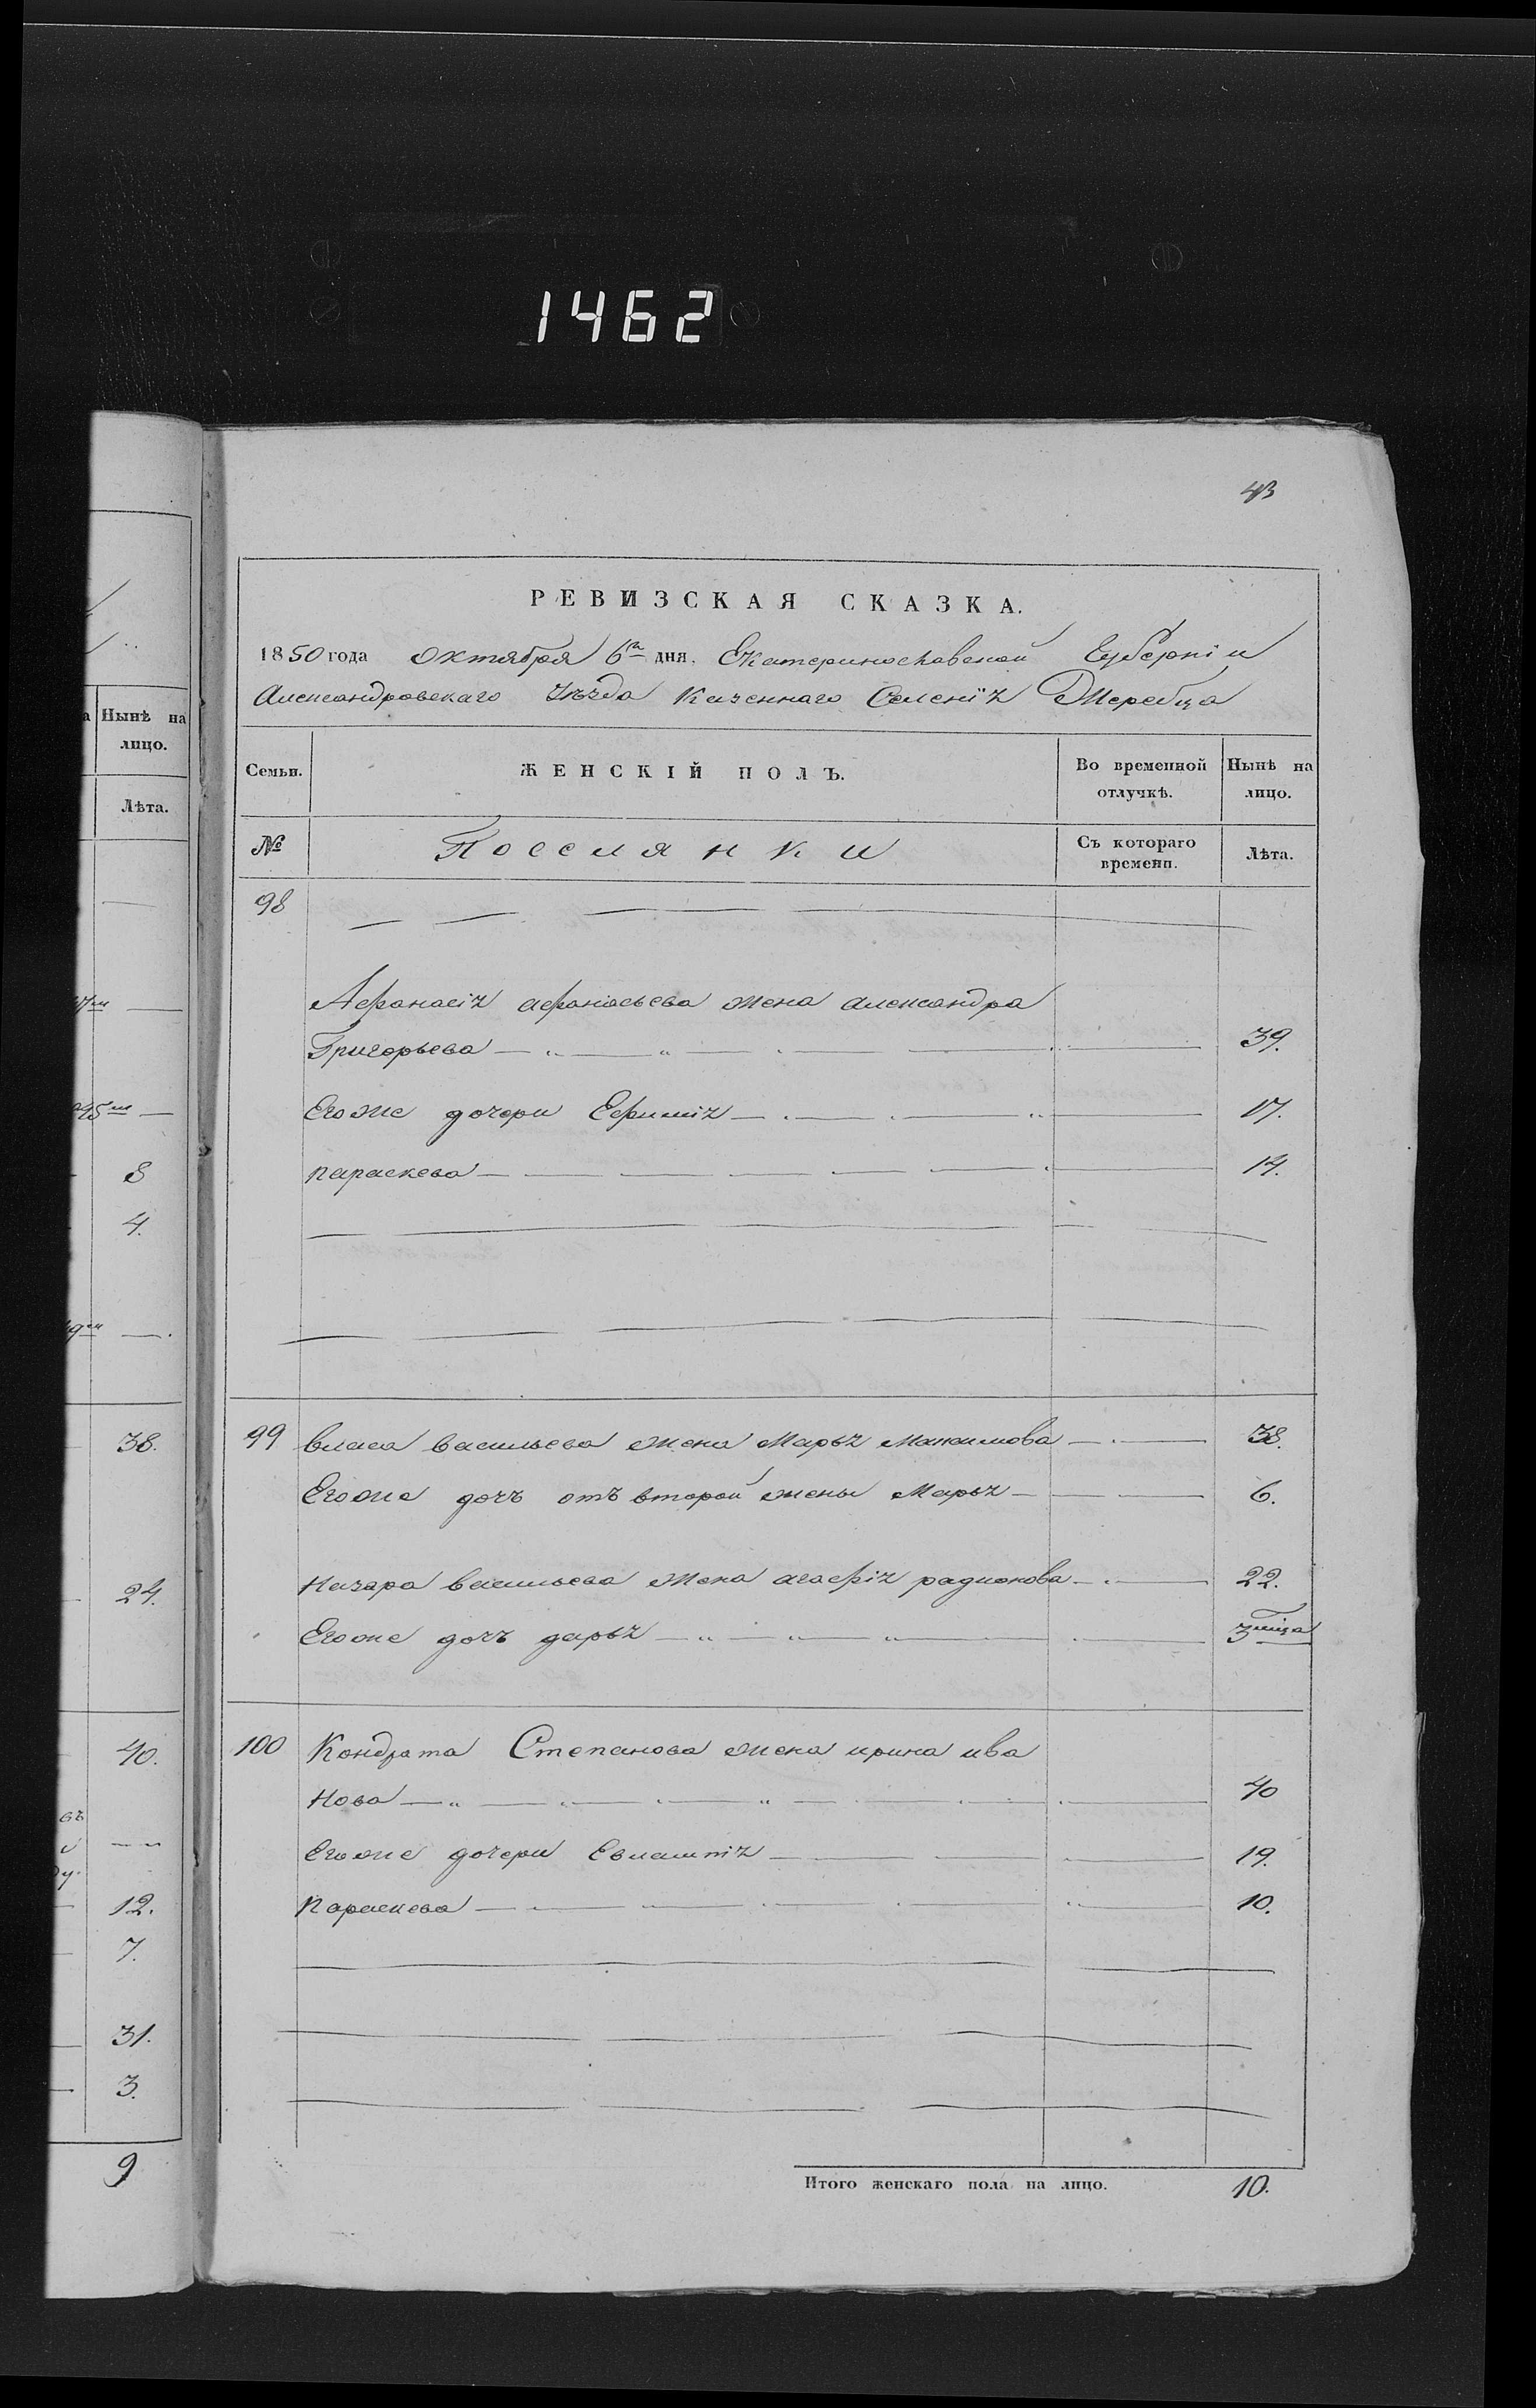 1462
43
РЕВИЗСКАЯ СКАЗКА.
1850 года октября 6го дня. Екатеринославской Губерніи
Александровскаго Уѣзда Казеннаго Селенія Жеребца
Семьи. ЖЕНСКІЙ ПОЛЪ. Во временной отлучкѣ. Нынѣ на лицо.
№ Поселянки Съ котораго времени. Лѣта.
98
Афанасія афанасьева жена александра
Григорьева 39.
Егоже дочери Ефимія 17.
параскева 14.
99 власа васильева жена Марья Максимова 38.
Егоже дочъ отъ второй жены Марья 6.
Назара васильева жена агафія радионова 22.
Егоже дочъ дарья 3 мѣца
100 Кондрата Степанова жена ирина ива
нова 40
Егоже дочери Евлампія 19.
Параскева 10.
Итого женскаго пола на лицо. 10.
Нынѣ на
лицо.
Лѣта.
8
4.
38.
24.
40.
12.
7.
31.
3.
9